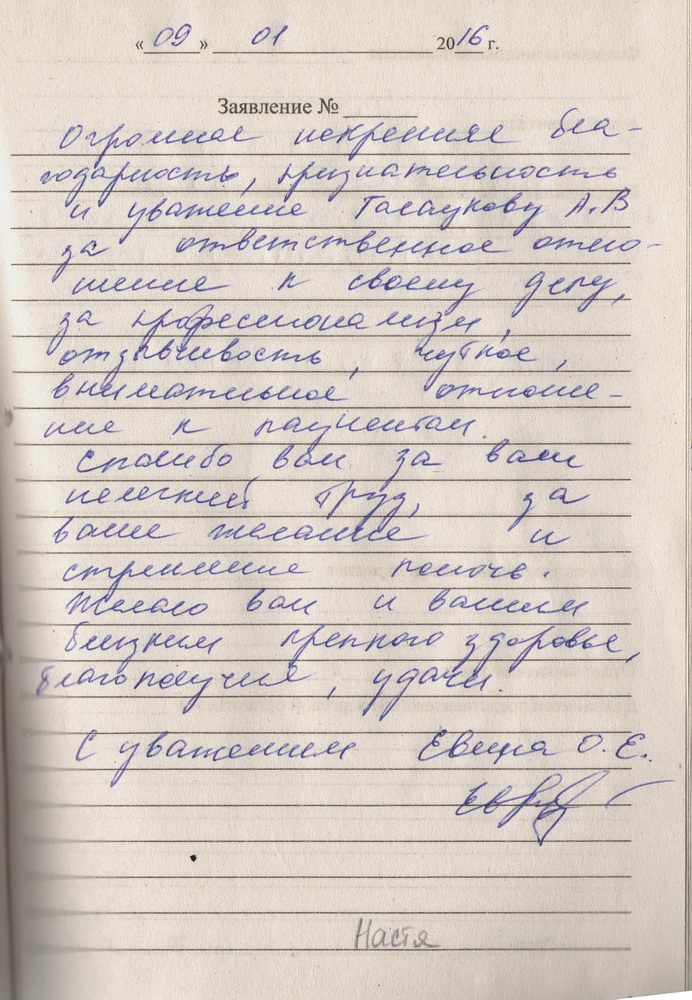 « 09 » 01 2016 г.
Заявление №
Огромное искренняе бла-
годарность, признательность
и уважение Галаукову А.В
за ответственное отно-
шение к своему делу,
за профессионализм,
отзывчивость, чуткое,
внимательное отноше-
ние к пациентам.
Спасибо вам за ваш
нелегкий труд, за
ваше желание и
стремление помочь.
Желаю вам и вашим
близким крепкого здоровье,
благополучия, удачи.
С уважением О. Е.
Настя